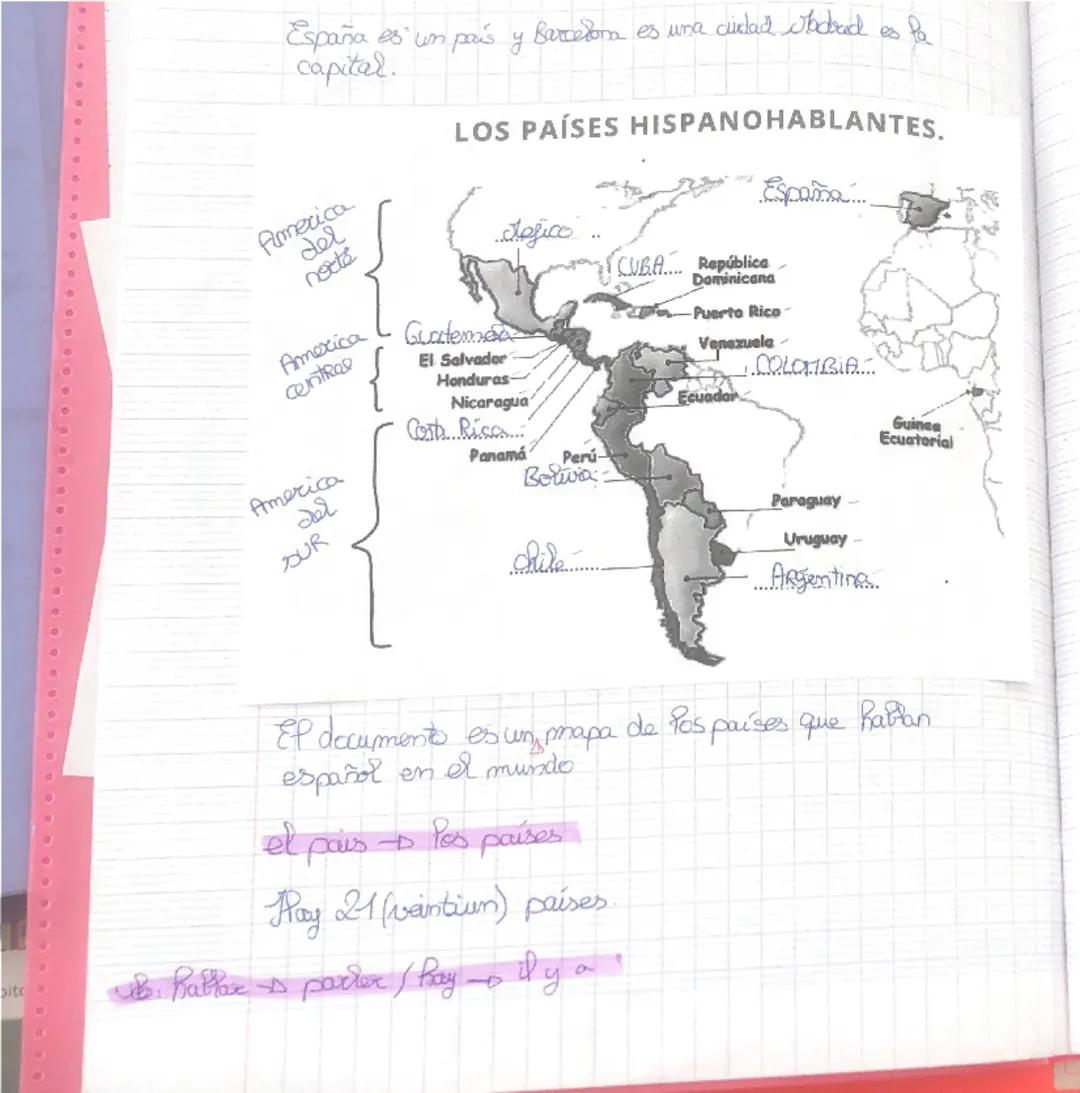 España es un país y Barcelona es una ciudad Madrid es la
capital.
LOS PAÍSES HISPANOHABLANTES.
America
del
norte
America
central
America
del
SUR
España
Mejico
CUBA
República
Dominicana
Puerto Rico
Guatemala
Venezuela
El Salvador
COLOMBIA
Honduras
Ecuador
Nicaragua
Costa Rica
Guinea
Ecuatorial
Panamá
Perú
Bolivia
Paraguay
Uruguay
chile
ARgentina
El documento es un mapa de los países que hablan
español en el mundo
el pais → los países
Hay 21 (veintiun) países.
vb: hablar → parler / hay → il y a